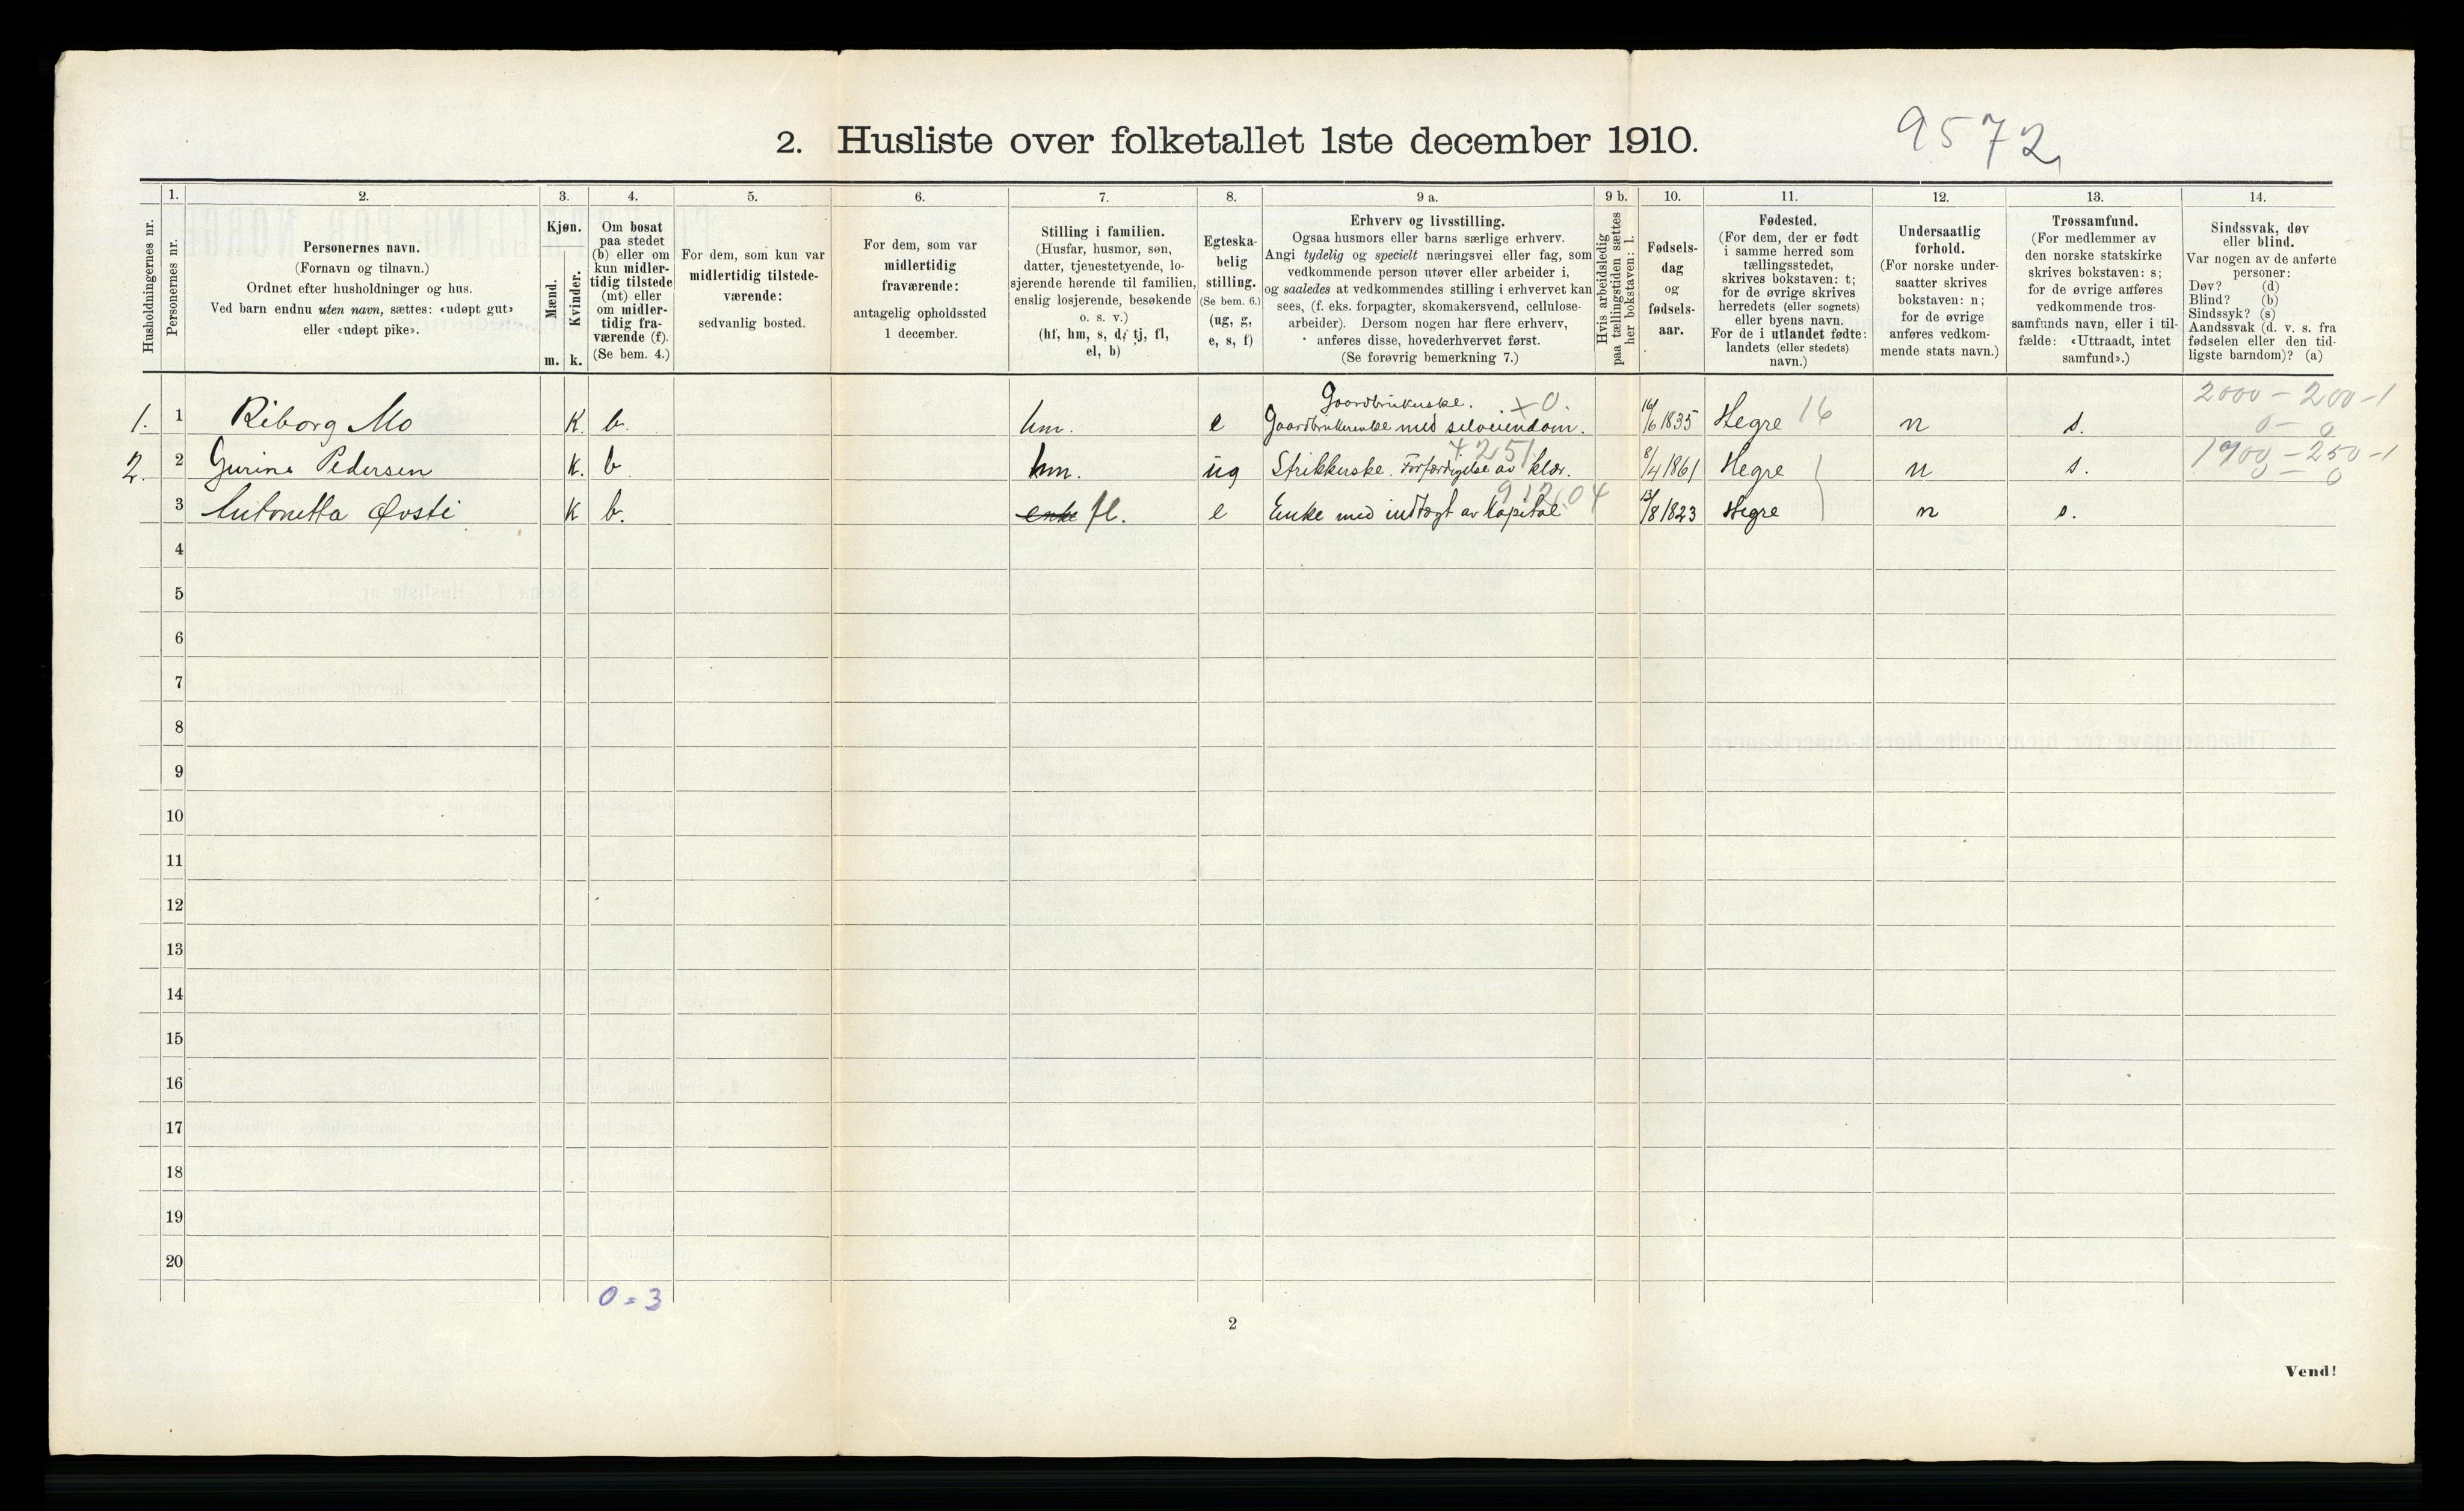 2. Husliste over folketallet 1ste december 1910.
9572
1. 2. 3. 4. 5. 6. 7. 8. 9 a. 9 b. 10. 11. 12. 13. 14.
Husholdningernes nr.
Personernes nr.
Personernes navn.
(Fornavn og tilnavn.)
Ordnet efter husholdninger og hus.
Ved barn endnu uten navn, sættes: «udøpt gut»
eller «udøpt pike».
Kjøn.
Mænd.
Kvinder.
m. k.
Om bosat
paa stedet
(b) eller om
kun midler-
tidig tilstede
(mt) eller
om midler-
tidig fra-
værende (f).
(Se bem. 4.)
For dem, som kun var
midlertidig tilstede-
værende:
sedvanlig bosted.
For dem, som var
midlertidig
fraværende:
antagelig opholdssted
1 december.
Stilling i familien.
(Husfar, husmor, søn,
datter, tjenestetyende, lo-
sjerende hørende til familien,
enslig losjerende, besøkende
o. s. v.)
(hf, hm, s, d, tj, fl,
el, b)
Egteska-
belig
stilling.
(Se bem. 6.)
(ug, g,
e, s, f)
Erhverv og livsstilling.
Ogsaa husmors eller barns særlige erhverv.
Angi tydelig og specielt næringsvei eller fag, som
vedkommende person utøver eller arbeider i,
og saaledes at vedkommendes stilling i erhvervet kan
sees, (f. eks. forpagter, skomakersvend, cellulose-
arbeider). Dersom nogen har flere erhverv,
anføres disse, hovederhvervet først.
(Se forøvrig bemerkning 7.)
Hvis arbeidsledig
paa tællingstiden sættes
her bokstaven: l.
Fødsels-
dag
og
fødsels-
aar.
Fødested.
(For dem, der er født
i samme herred som
tællingsstedet,
skrives bokstaven: t;
for de øvrige skrives
herredets (eller sognets)
eller byens navn.
For de i utlandet fødte:
landets (eller stedets)
navn.)
Undersaatlig
forhold.
(For norske under-
saatter skrives
bokstaven: n;
for de øvrige
anføres vedkom-
mende stats navn.)
Trossamfund.
(For medlemmer av
den norske statskirke
skrives bokstaven: s;
for de øvrige anføres
vedkommende tros-
samfunds navn, eller i til-
fælde: «Uttraadt, intet
samfund».)
Sindssvak, døv
eller blind.
Var nogen av de anførte
personer:
Døv? (d)
Blind? (b)
Sindssyk? (s)
Aandssvak (d. v. s. fra
fødselen eller den tid-
ligste barndom)? (a)
Gaardbrukerske. x0. 2000 - 200 - 1
1. 1 Riborg Mo K. b. hm. e Gaardbrukerenke med selveiendom. 16/6 1835 Hegre 16 n s. 0 - 0
4251 1900 - 250 - 1
2. 2 Gurine Pedersen K. b hm. ug Strikkerske. Forfærdigelse av klær. 8/4 1861 Hegre n s. 0 - 0
91204
3 Antonetta Øvsti K b. enke fl. e Enke med indtægt av Kapital 13/8 1823 Hegre n s.
4
5
6
7
8
9
10
11
12
13
14
15
16
17
18
19
20
0 = 3
2
Vend!